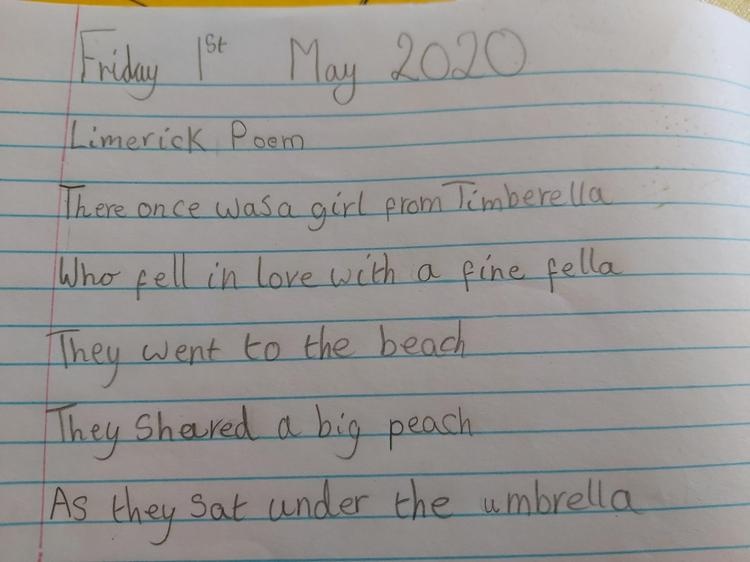 Friday 1st May 2020
Limerick Poem
There once was a girl from Timberella
Who fell in love with a fine fella
They went to the beach
They shared a big peach
As they sat under the umbrella